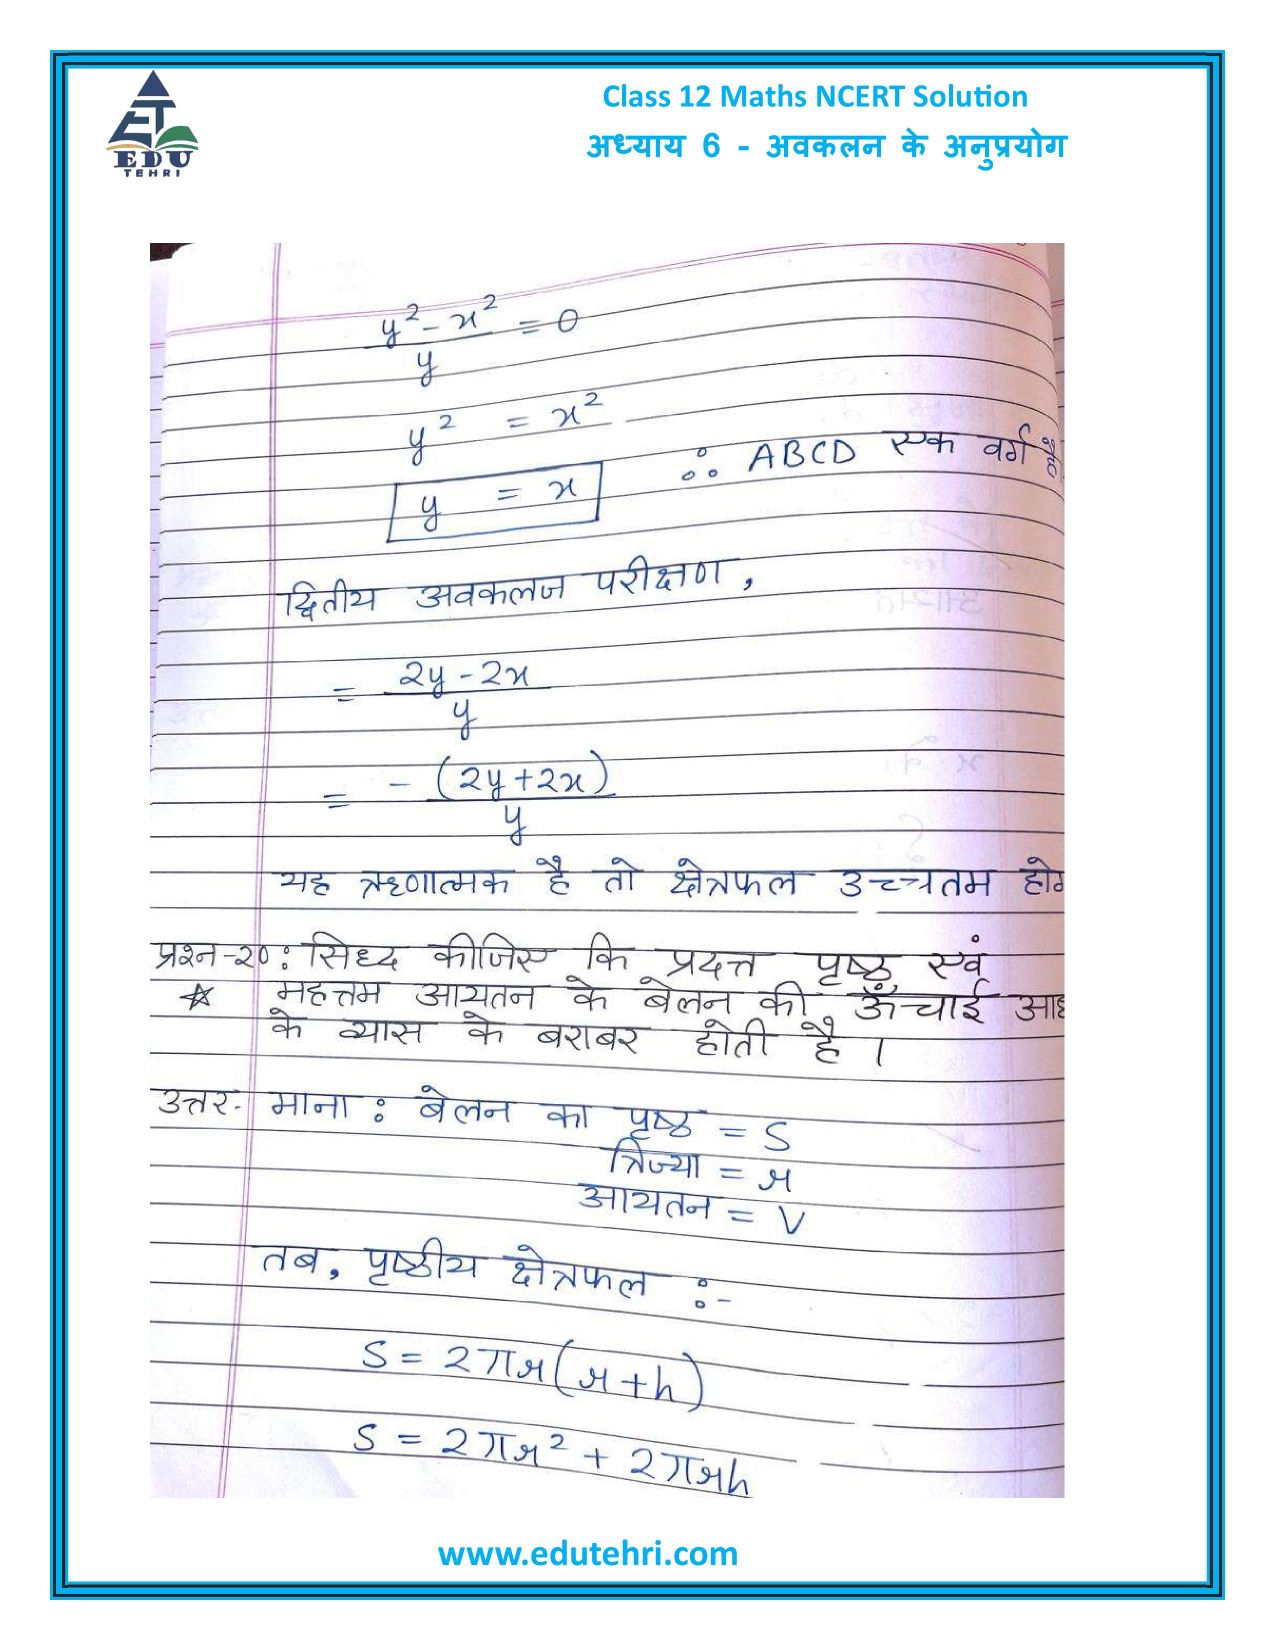 Class 12 Maths NCERT Solution
अध्याय 6 - अवकलन के अनुप्रयोग
EDU
TEHRI
y² - x² / y = 0
y² = x²
y = x ∴ ABCD एक वर्ग है
द्वितीय अवकलज परीक्षण,
= 2y - 2x / y
= - (2y + 2x) / y
यह ऋणात्मक है तो क्षेत्रफल उच्चतम
प्रश्न-२०: सिध्द कीजिए कि प्रदत्त पृष्ठ एवं
☆ महत्तम आयतन के बेलन की ऊँचाई
के व्यास के बराबर होती है ।
उत्तर- माना : बेलन का पृष्ठ = S
त्रिज्या = r
आयतन = V
तब, पृष्ठीय क्षेत्रफल :-
S = 2πr(r+h)
S = 2πr² + 2πrh
www.edutehri.com